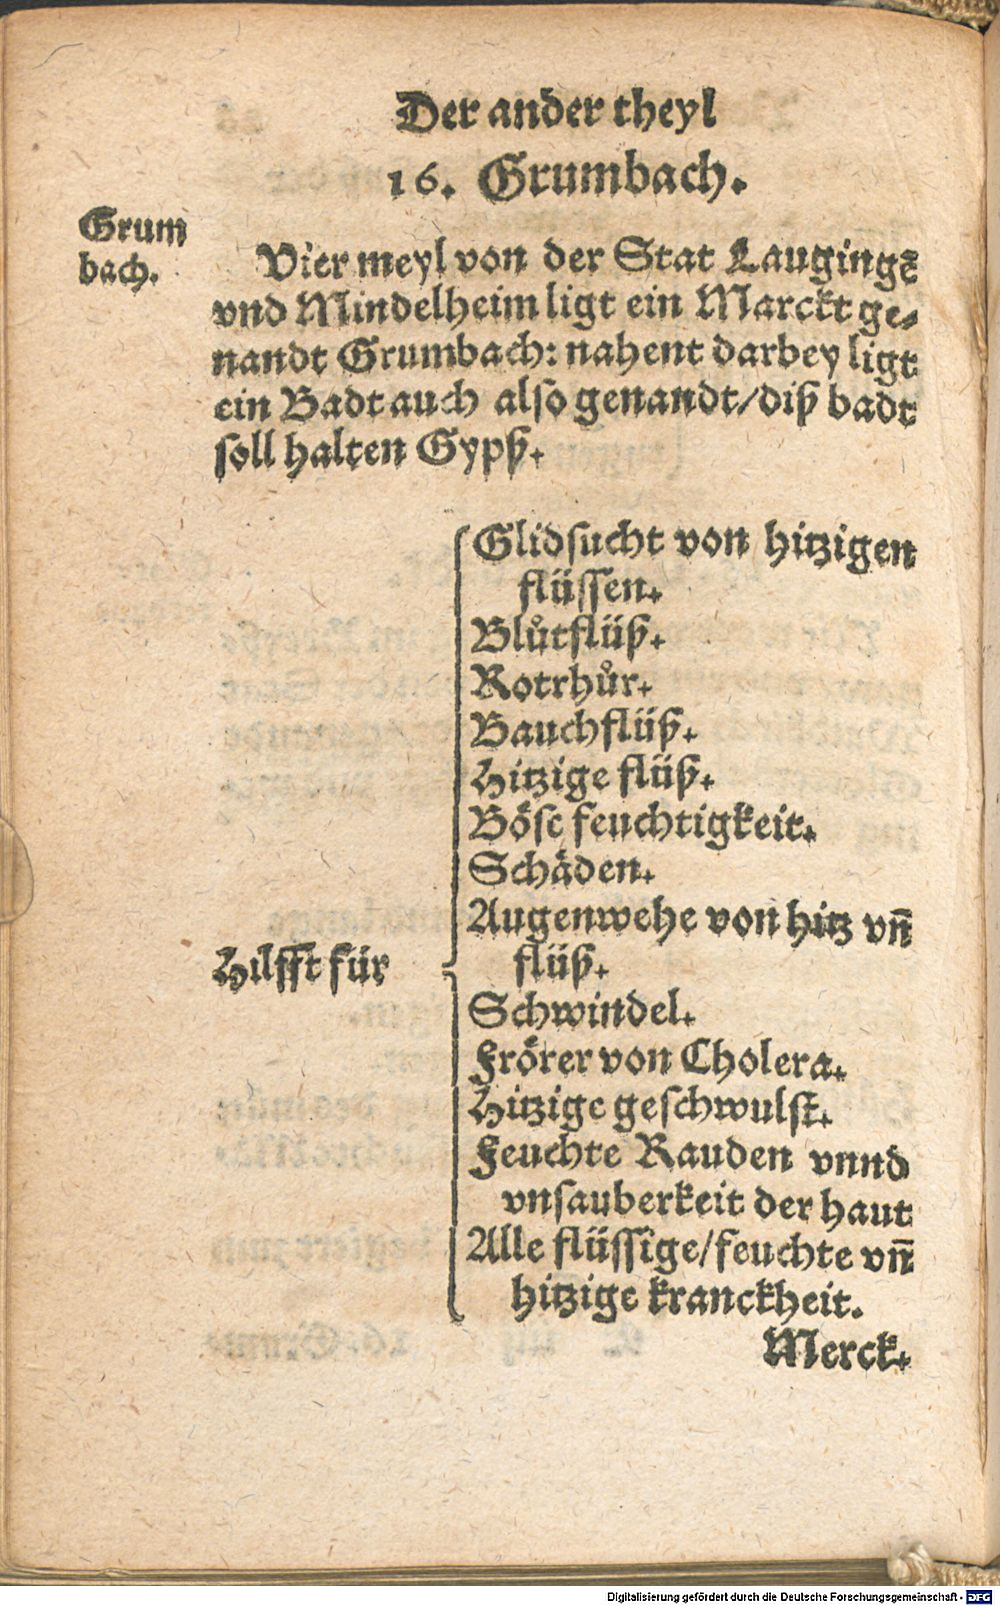 Der ander theyl
16. Grumbach.
Grum
bach.
Vier meyl von der Stat Laugingē
vnd Mindelheim ligt ein Marckt ge⸗
nandt Grumbach: nahent darbey ligt
ein Badt auch also genandt/diß badt
soll halten Gypß.
Hilfft für
Glidsucht von hitzigen
flüssen.
Blůtflüß.
Rotrhůr.
Bauchflüß.
Hitzige flüß.
Böse feuchtigkeit.
Schäden.
Augenwehe von hitz vñ
flüß.
Schwindel.
Frörer von Cholera.
Hitzige geschwulst.
Feuchte Rauden vnnd
vnsauberkeit der haut
Alle flüssige/feuchte vñ
hitzige kranckheit.
Merck.
Digitalisierung gefördert durch die Deutsche Forschungsgemeinschaft - DFG